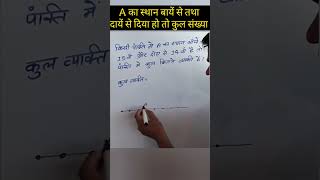 A का स्थान बायें से तथा
दायें से दिया हो तो कुल संख्या
किसी पंक्ति में A का स्थान बायें
15 वें और दायें से 14 वां है तो
पंक्ति में कुल कितने व्यक्ति हैं।
कुल व्यक्ति=